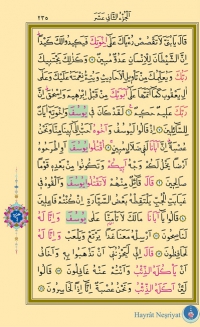 اَلْجُزْءُ الثَّانِي عَشَرَ ٢٣٥
قَالَ يَا بُنَيَّ لَا تَقْصُصْ رُؤْيَاكَ عَلٰٓى اِخْوَتِكَ فَيَكِيدُوا لَكَ كَيْدًا
اِنَّ الشَّيْطَانَ لِلْاِنْسَانِ عَدُوٌّ مُبِينٌ ۝ وَكَذٰلِكَ يَجْتَبِيكَ
رَبُّكَ وَيُعَلِّمُكَ مِنْ تَأْوِيلِ الْاَحَادِيثِ وَيُتِمُّ نِعْمَتَهُ عَلَيْكَ وَعَلٰٓى
اٰلِ يَعْقُوبَ كَمَٓا اَتَمَّهَا عَلٰٓى اَبَوَيْكَ مِنْ قَبْلُ اِبْرٰهِيمَ وَاِسْحٰقَ اِنَّ
رَبَّكَ عَلِيمٌ حَكِيمٌ ۝ لَقَدْ كَانَ فِي يُوسُفَ وَاِخْوَتِهٓ اٰيَاتٌ
لِلسَّٓائِلِينَ ۝ اِذْ قَالُوا لَيُوسُفُ وَاَخُوهُ اَحَبُّ اِلٰٓى اَبِينَا مِنَّا وَنَحْنُ
عُصْبَةٌ اِنَّ اَبَانَا لَفِي ضَلَالٍ مُبِينٍ ۝ اُقْتُلُوا يُوسُفَ اَوِ اطْرَحُوهُ
اَرْضًا يَخْلُ لَكُمْ وَجْهُ اَبِيكُمْ وَتَكُونُوا مِنْ بَعْدِهٖ قَوْمًا
صَالِحِينَ ۝ قَالَ قَٓائِلٌ مِنْهُمْ لَا تَقْتُلُوا يُوسُفَ وَاَلْقُوهُ فِي
غَيَابَتِ الْجُبِّ يَلْتَقِطْهُ بَعْضُ السَّيَّارَةِ اِنْ كُنْتُمْ فَاعِلِينَ ۝
قَالُوا يَٓا اَبَانَا مَالَكَ لَا تَأْمَنَّا عَلٰى يُوسُفَ وَاِنَّا لَهُ
لَنَاصِحُونَ ۝ اَرْسِلْهُ مَعَنَا غَدًا يَرْتَعْ وَيَلْعَبْ وَاِنَّا لَهُ
لَحَافِظُونَ ۝ قَالَ اِنِّي لَيَحْزُنُنِٓي اَنْ تَذْهَبُوا بِهٖ وَاَخَافُ
اَنْ يَأْكُلَهُ الذِّئْبُ وَاَنْتُمْ عَنْهُ غَافِلُونَ ۝ قَالُوا
لَئِنْ اَكَلَهُ الذِّئْبُ وَنَحْنُ عُصْبَةٌ اِنَّٓا اِذًا لَخَاسِرُونَ ۝
Hayrât Neşriyat